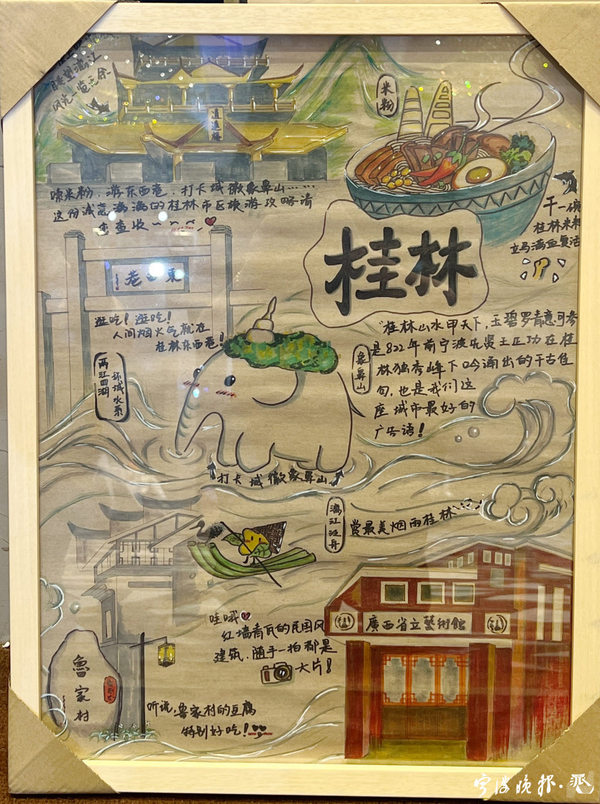 风光一览无余
逍遥楼
米粉
嗦米粉,游东西巷,打卡城徽象鼻山……
这份诚意满满的桂林市区旅游攻略请
查收~~~
干一碗
桂林米粉
立马满血复活
桂林
東西巷
逛吃!逛吃!
人间烟火气就在
桂林东西巷!
两江四湖
环城水系
象鼻山
"桂林山水甲天下,玉碧罗青意可参"
是822年前宁波先贤王正功在桂
林独秀峰下吟诵出的千古佳
句,也是我们这
座城市最好的
广告语!
打卡城徽象鼻山
漓江泛舟
赏最美烟雨桂林
哇哦
红墙青瓦的民国风
建筑,随手一拍都是
大片!
廣西省立藝術館
魯家村
听说,鲁家村的豆腐
特别好吃!
宁波晚报